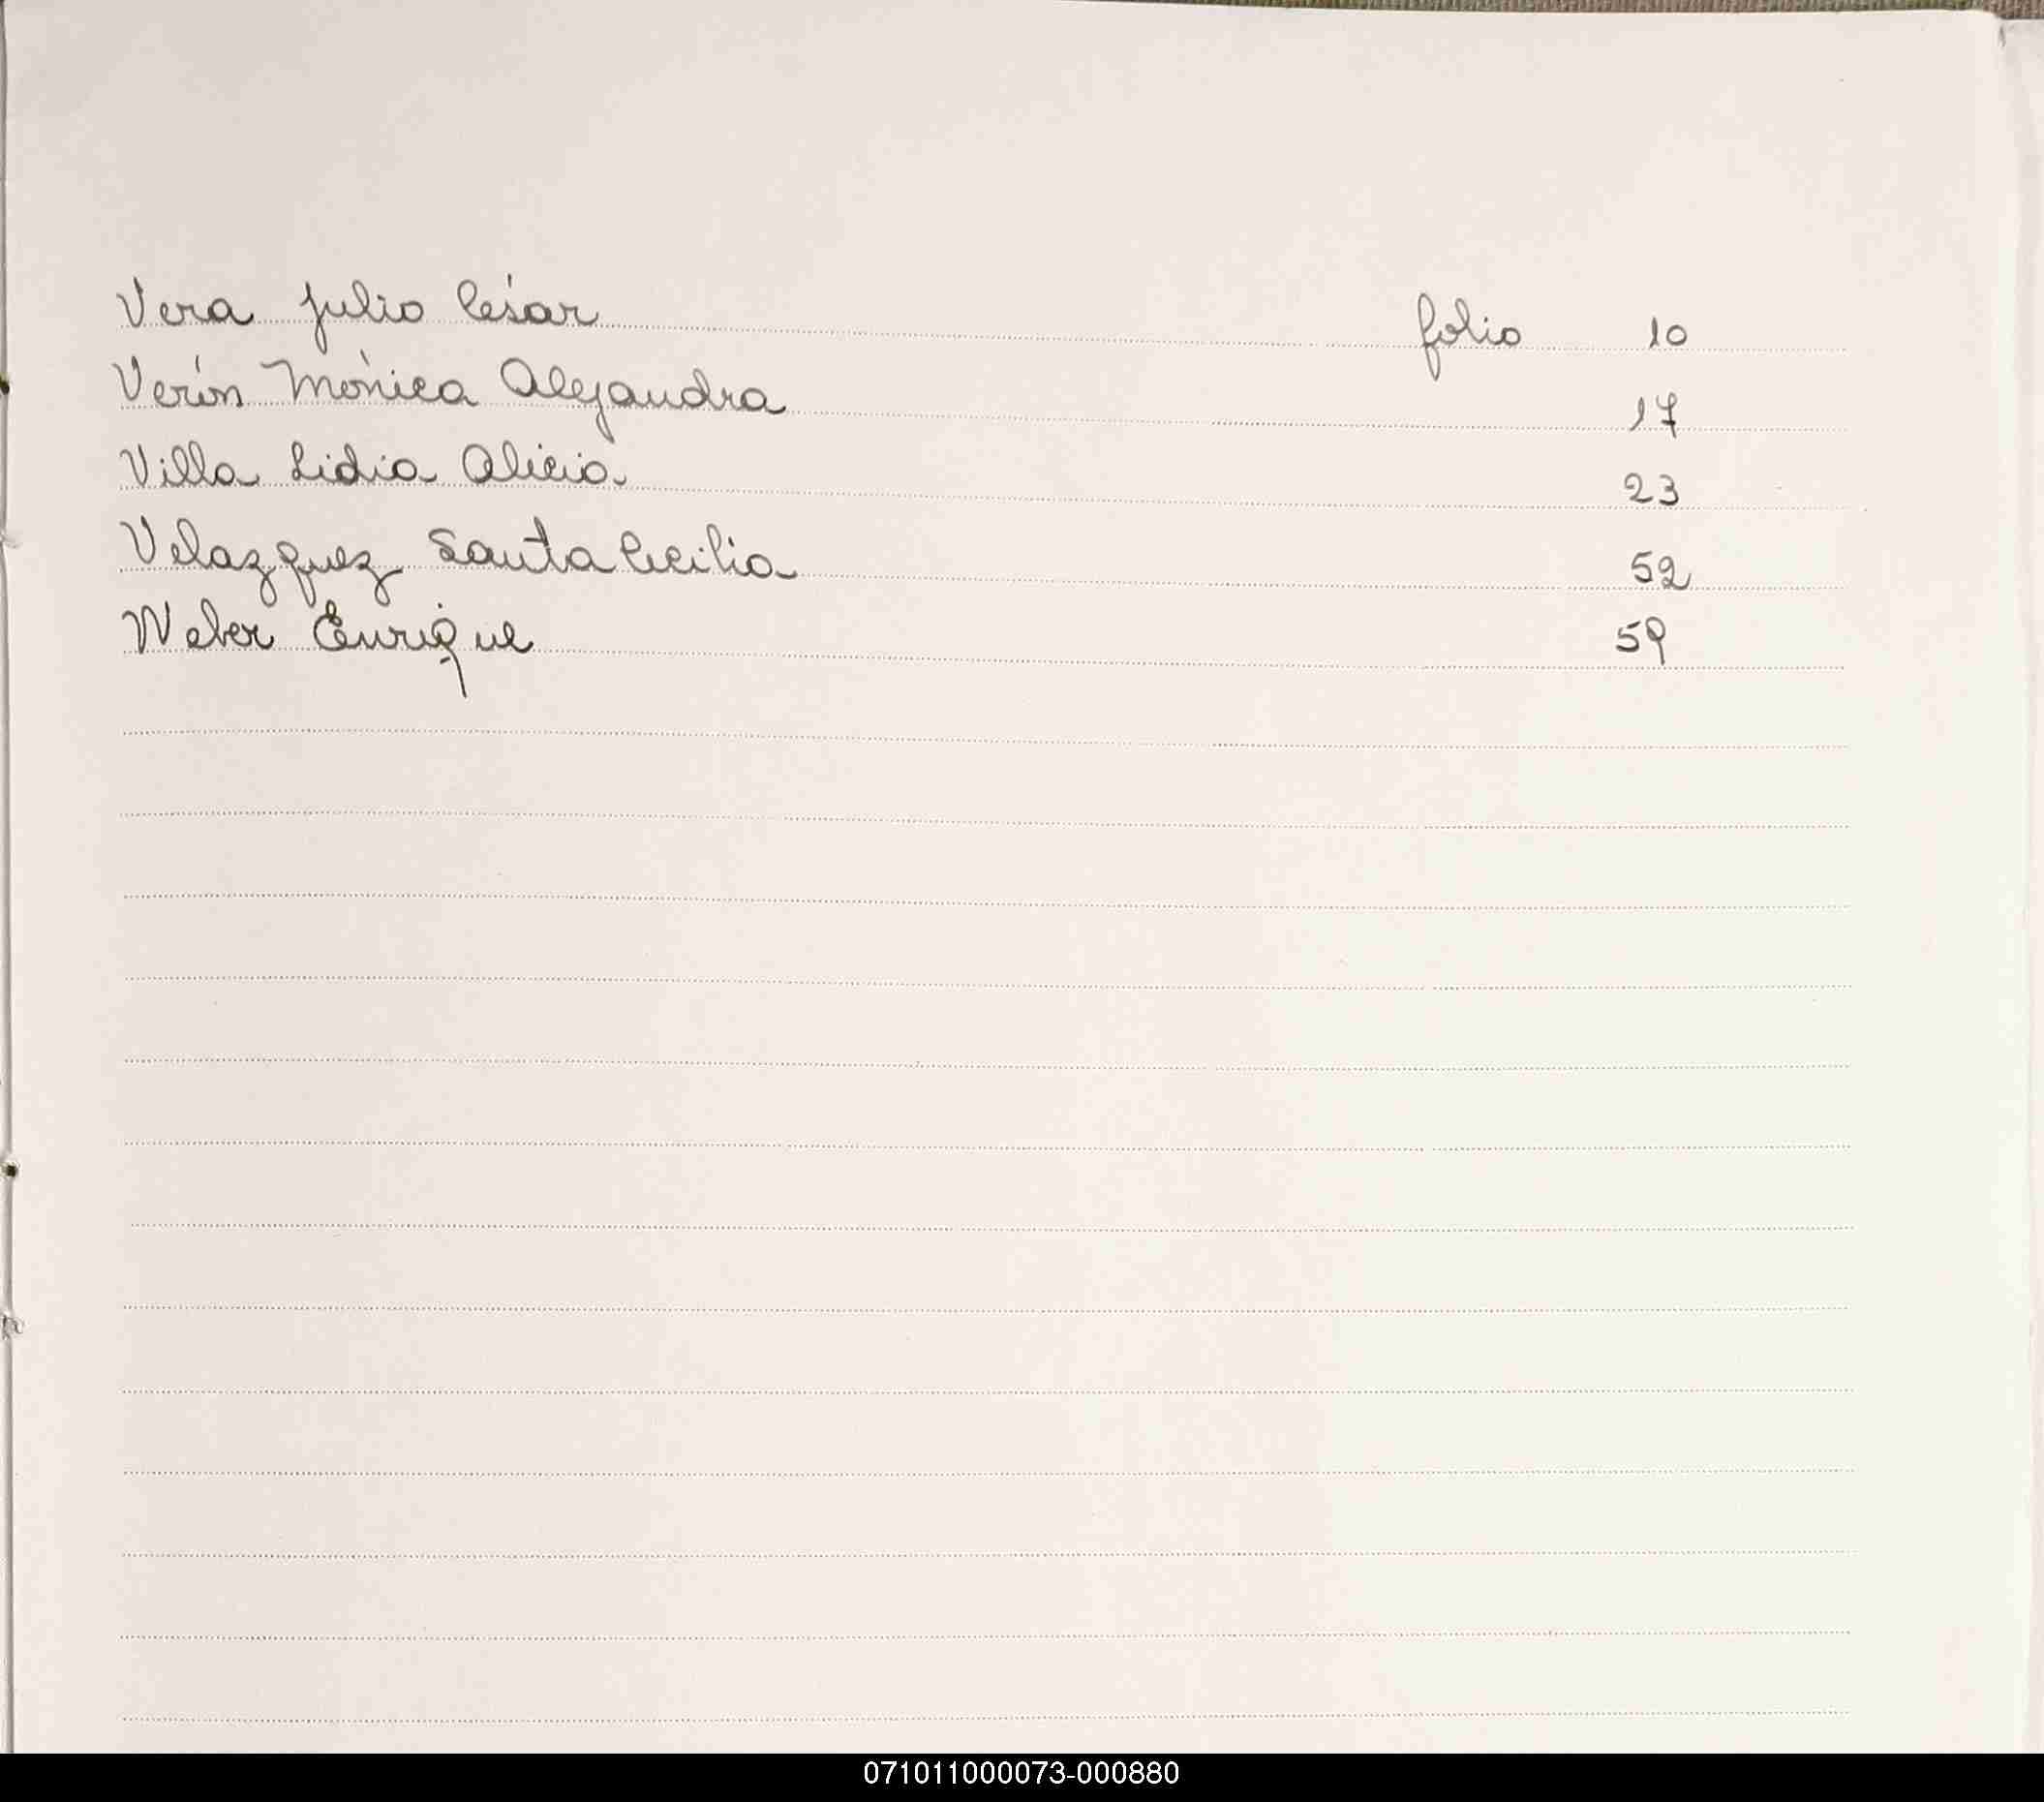 Vera Julio César folio 10
Verón Mónica Alejandra 17
Villa Lidia Alicia 23
Velazquez Santa Cecilia 52
Weber Enrique 59
071011000073-000880